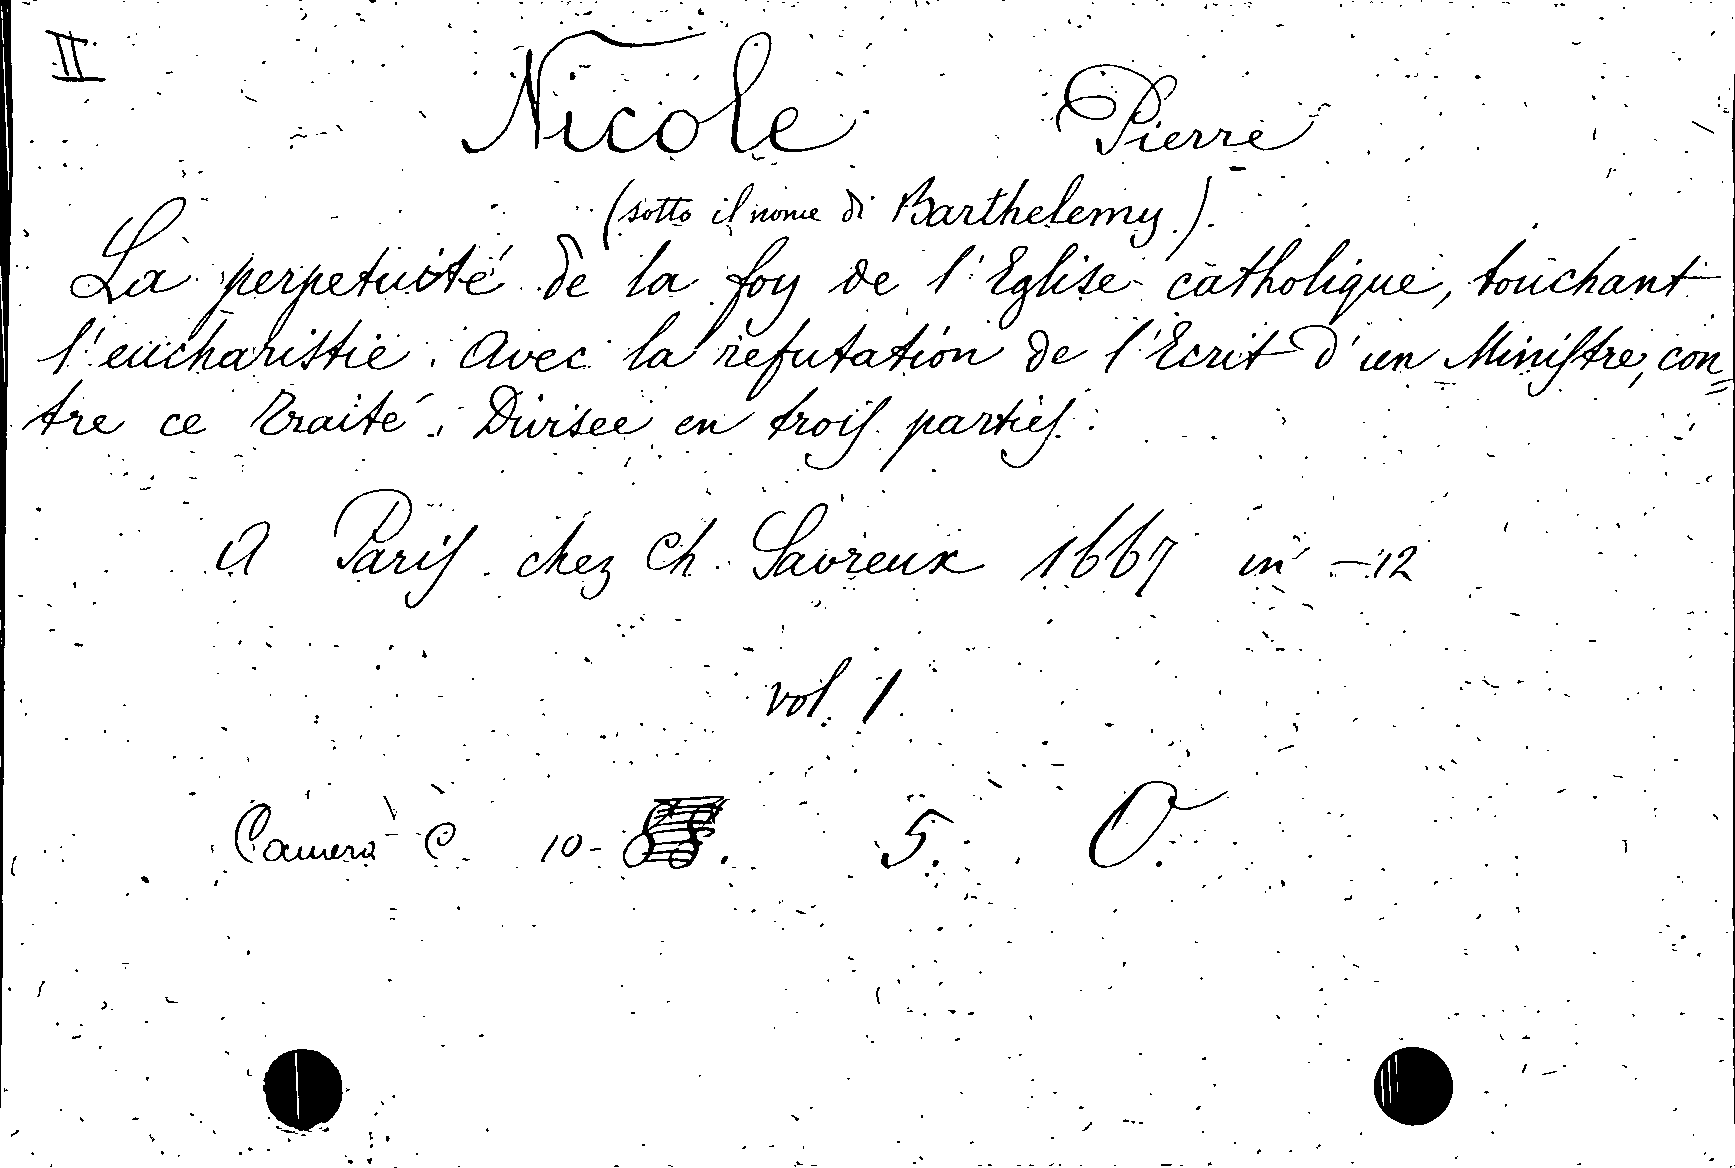 II
Nicole Pierre
(sotto il nome di Barthelemy).
La perpetuité de la foy de l'Eglise catholique, touchant
l'eucharistie. Avec la refutation de l'Ecrit d'un Ministre, con=
tre ce Traité. Divisee en trois parties.
A Paris chez Ch. Savreux 1667 in -12
vol. 1.
Camera C 10- 5. O.